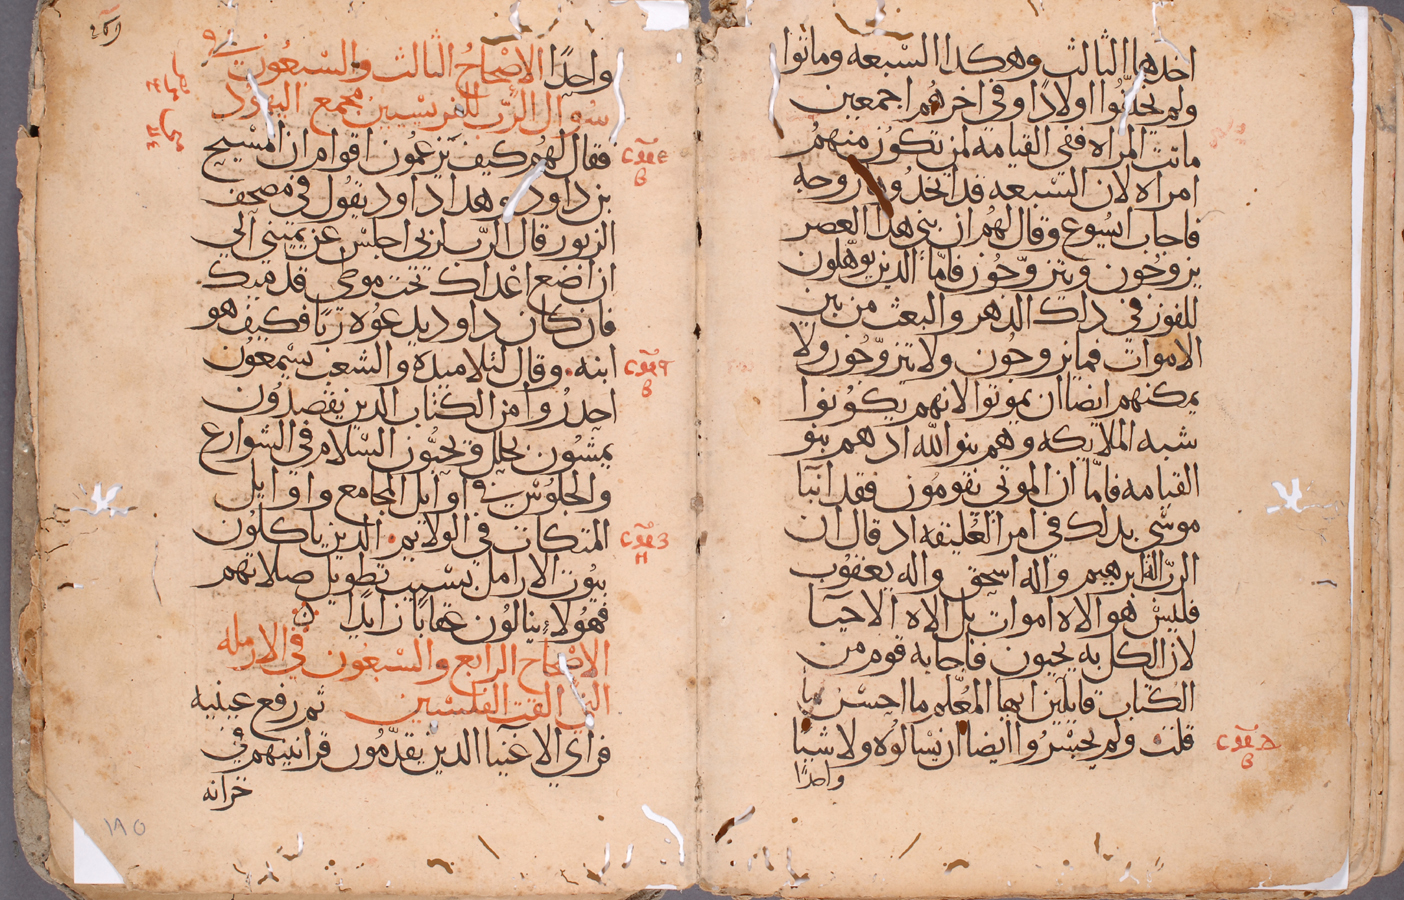 اخدها الثالث وهكدا السبعه وماتوا
ولم يخلفوا اولادًا وفي اخرهم اجمعين
ماتت المراه ففي القيامه لمن تكون منهم
امراه لان السبعه قد اتخدوها زوجه
فاجاب ايسوع وقال لهم ان بني هدا العصر
يزوجون ويتزوّجون فامّا الدين يوهّلون
للفوز في داك الدهر والبعث من بين
الاموات فما يزوجون ولا يتزوّجون ولا
يمكنهم ايضا ان يموتوا لانهم يكونوا
شبه الملايكه وهم بنوا الله اد هم بنو
القيامه فامّا ان الموتي يقومون فقد انبا
موسي بدلك في امر العليقه اد قال ان
الربّ اله ابرهيم واله اسحق واله يعقوب
فليس هو الاه اموات بل الاه الاحيا
لان الكل به يحيون فاجابه قوم من
الكتاب قايلين ايها المعلم ما احسن ما
قلت ولم يجسروا ايضا ان يسالوه ولا شيا
واحدًا
واحدًا الاصحاح الثالث والسبعون
سوال الرّب للفريسيين مجمع اليهود
فقال لهم كيف يزعمون اقوام ان المسيح
بن داود وهدا داود يقول في مصحف
الزبور قال الرّب لربي اجلس عن يميني الي
ان اضع اعداك تحت موطي قدميك
فان كان داود يدعوه ربًا فكيف هو
ابنه. وقال لتلاميده والشعب يسمعون
احدروا من الكتاب الدين يقصدون
يمشون بحلل ويحبّون السلام في الشوارع
والجلوس في اوايل المجامع واوايل
المتكات في الولايم. الدين ياكلون
بيوت الارامل بسبب تطويل صلاتهم
فهولاء ينالون عقابًا زايدًا
الاصحاح الرابع والسبعون في الارمله
التي القت الفلسين ثم رفع عينيه
فراي الاغنيا الدين يقدّمون قرابينهم في
خزانه
١٨٥